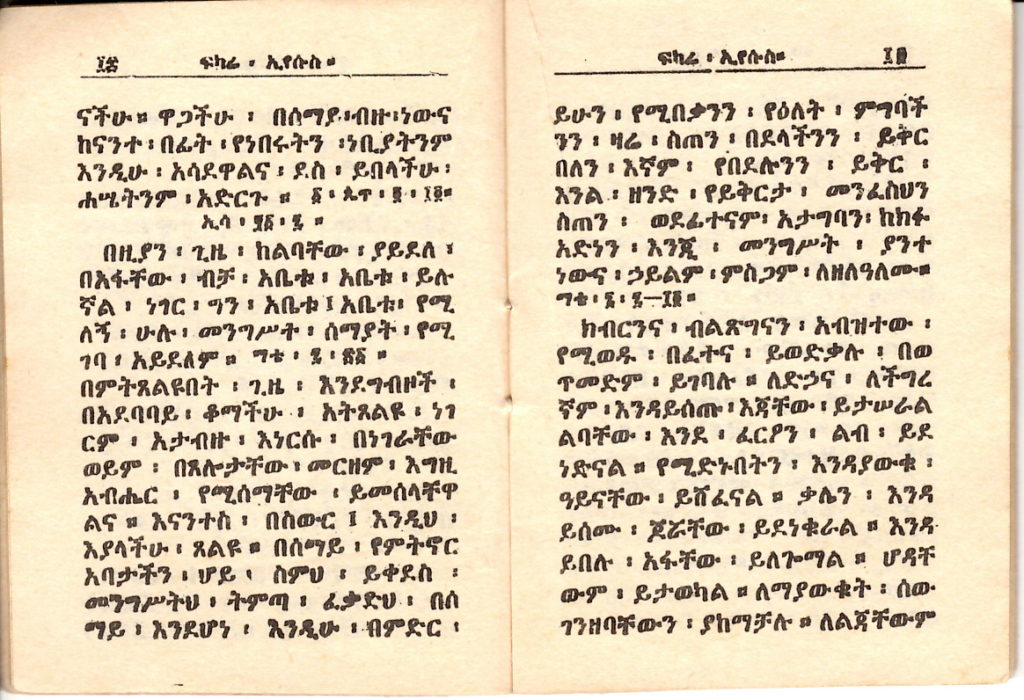 ፲፰ ፍካሬ ፡ ኢየሱስ ።
ናችሁ ። ዋጋችሁ ፡ በሰማይ ፡ ብዙ ፡ ነውና
ከናንተ ፡ በፊት ፡ የነበሩትን ፡ ነቢያትንም
እንዲሁ ፡ አሳደዋልና ፡ ደስ ፡ ይበላችሁ ፡
ሐሤትንም ፡ አድርጉ ። ፩ ፡ ጴጥ ፡ ፬ ፡ ፲፬ ።
ኢሳ ፡ ፶፩ ፡ ፯ ።
በዚያን ፡ ጊዜ ፡ ከልባቸው ፡ ያይደለ ፡
በአፋቸው ፡ ብቻ ፡ አቤቱ ፡ አቤቱ ፡ ይሉ
ኛል ፡ ነገር ፡ ግን ፡ አቤቱ ፤ አቤቱ ፡ የሚ
ለኝ ፡ ሁሉ ፡ መንግሥተ ፡ ሰማያት ፡ የሚ
ገባ ፡ አይደለም ። ማቴ ፡ ፯ ፡ ፳፩ ።
በምትጸልዩበት ፡ ጊዜ ፡ እንደግብዞች ፡
በአደባባይ ፡ ቆማችሁ ፡ አትጸልዩ ፡ ነገ
ርም ፡ አታብዙ ፡ እነርሱ ፡ በነገራቸው
ወይም ፡ በጸሎታቸው ፡ መርዘም ፡ እግዚ
አብሔር ፡ የሚሰማቸው ፡ ይመስላቸዋ
ልና ። እናንተስ ፡ በስውር ፤ እንዲህ ፡
እያላችሁ ፡ ጸልዩ ። በሰማይ ፡ የምትኖር
አባታችን ፡ ሆይ ፡ ስምህ ፡ ይቀደስ ፡
መንግሥትህ ፡ ትምጣ ፡ ፈቃድህ ፡ በሰ
ማይ ፡ እንደሆነ ፡ እንዲሁ ፡ በምድር ፡
ፍካሬ ፡ ኢየሱስ ።
ይሁን ፡ የሚበቃንን ፡ የዕለት ፡ ምግባች
ንን ፡ ዛሬ ፡ ስጠን ፡ በደላችንን ፡ ይቅር
በለን ፡ እኛም ፡ የበደሉንን ፡ ይቅር ፡
እንል ፡ ዘንድ ፡ የይቅርታ ፡ መንፈስህን
ስጠን ፡ ወደፊተናም ፡ አታግባን ፡ ከክፉ
አድነን ፡ እንጂ ፡ መንግሥት ፡ ያንተ
ነውና ፡ ኃይልም ፡ ምስጋም ፡ ለዘለዓለሙ ።
ማቴ ፡ ፮ ፡ ፯—፲፬ ።
ክብርንና ፡ ብልጽግናን ፡ አብዝተው ፡
የሚወዱ ፡ በፈተና ፡ ይወድቃሉ ፡ በወ
ጥመድም ፡ ይገባሉ ። ለድኃና ፡ ለችግረ
ኛም ፡ እንዳይሰጡ ፡ እጃቸው ፡ ይታሠራል
ልባቸው ፡ እንደ ፡ ፈርዖን ፡ ልብ ፡ ይደ
ነድናል ። የሚድኑበትን ፡ እንዳያውቁ ፡
ዓይናቸው ፡ ይሸፈናል ። ቃሌን ፡ እንዳ
ይሰሙ ፡ ጆሯቸው ፡ ይደነቁራል ። እንዳ
ይበሉ ፡ አፋቸው ፡ ይለጐማል ። ሆዳቸ
ውም ፡ ይታወካል ። ለማያውቁት ፡ ሰው
ገንዘባቸውን ፡ ያከማቻሉ ። ለልጃቸውም